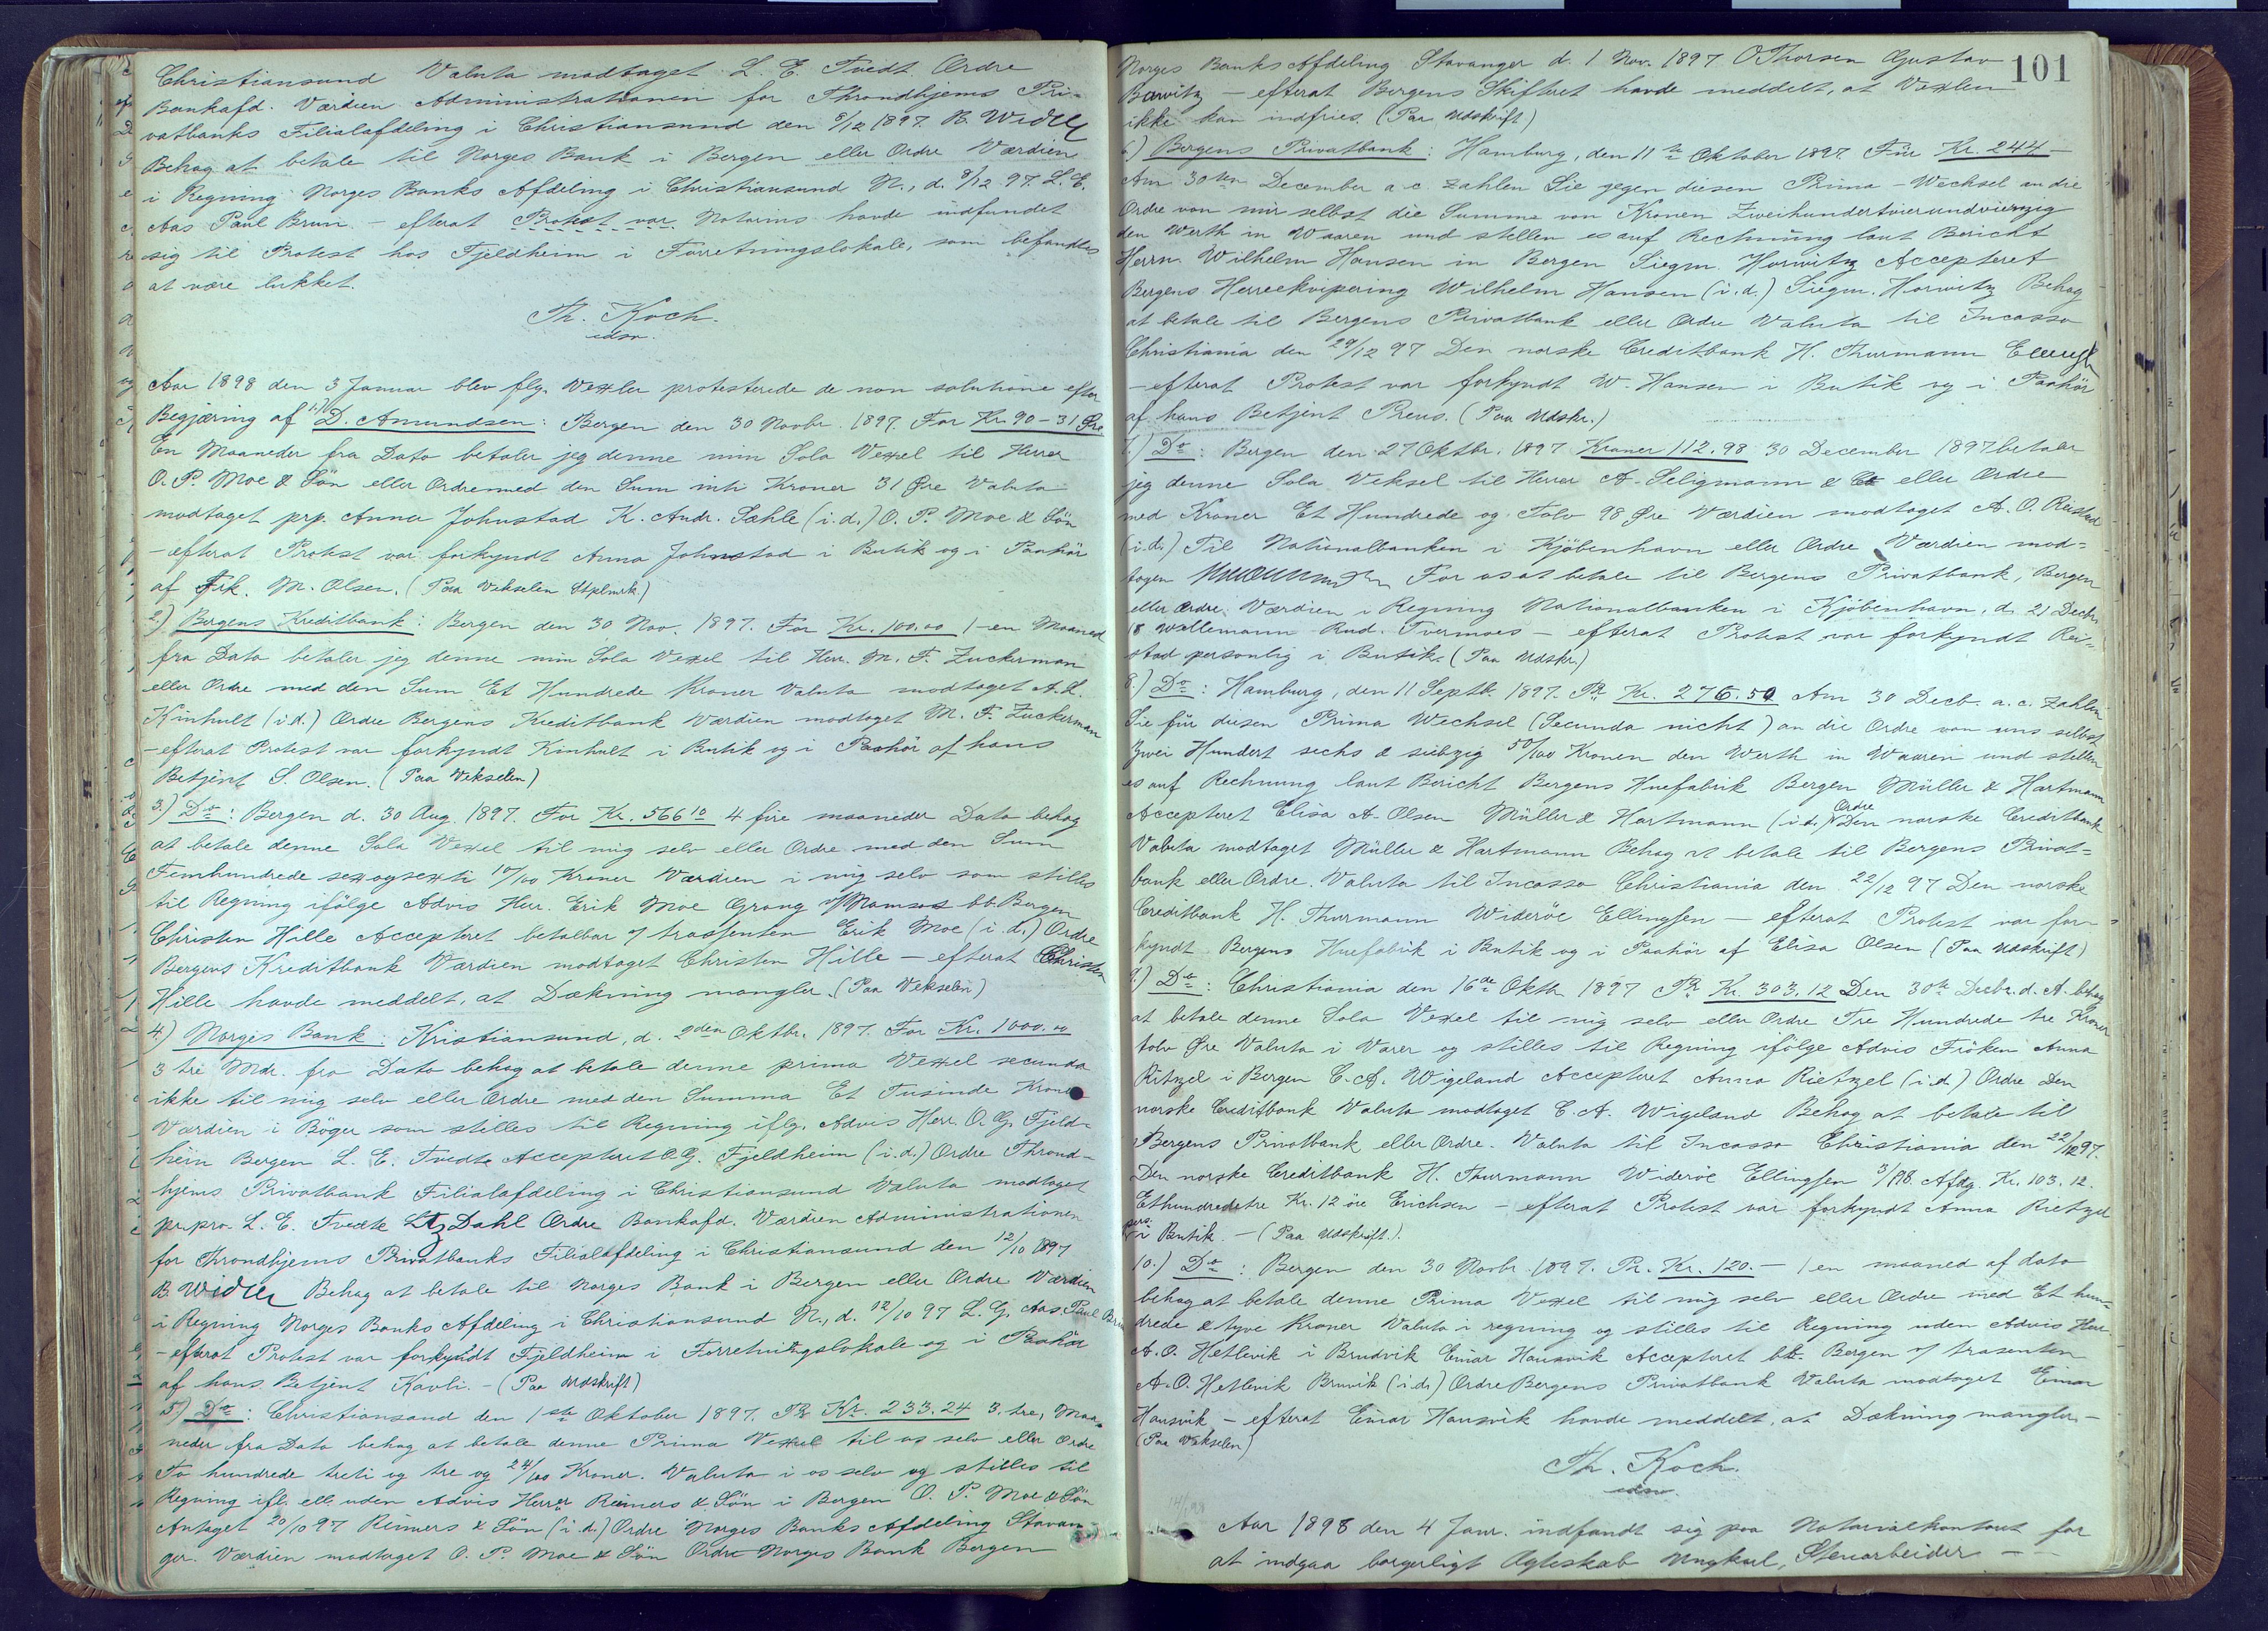 Christiansund Valuta modtaget L. E. Tvedt Ordre
Bankafd. Værdien Administrationen for Throndhjems Pri-
vatbanks Filialafdeling i Christiansund den 8/12 1897. B. Widtle
Behag at betale til Norges Bank i Bergen eller Ordre Værdien
i Regning Norges Banks Afdeling i Christiansund N., d. 8/12 97. L. E.
Aas Paul Brun. - efterat Protest var Notarius havde indfundet
sig til Protest hos Fjeldheim i Forretningslokale, som befandtes
at være lukket.
Th. Koch.
Aar 1898 den 3 Januar blev flg. Vexler protesterede de non solutione efter
Begjæring af 1.) D. Amundsen: Bergen den 30 Novbr. 1897. For Kr. 90-31 Øre
En Maaneder fra Dato betaler jeg denne min Sola Vexel til Herrer
O. P. Moe & Sön eller Ordre med den Sum nti Kroner 31 Øre Valuta
modtaget prp. Anna Johnstad K. Andr. Sæhle (i.d.) O. P. Moe & Sön
- efterat Protest var forkyndt Anna Johnstad i Butik og i Paahör
af Frk. M. Olsen. (Paa Vekselen Stplmrk.)
2.) Bergens Kreditbank: Bergen den 30 Nov. 1897. For Kr. 100.00 1-en Maaned
fra Dato betaler jeg denne min Sola Vexel til Herr. M. F. Zuckerman
eller Ordre med den Sum Et Hundrede Kroner Valuta modtaget A. L.
Kinhult (i.d.) Ordre Bergens Kreditbank Værdien modtaget M. F. Zuckerman
- efterat Protest var forkyndt Kinhult i Butik og i Paahör af hans
Betjent S. Olsen. (Paa Vekselen)
3.) Do: Bergen d. 30 Aug. 1897. For Kr. 566 10 4 fire maaneder Dato behag
at betale denne Sola Vexel til mig selv eller Ordre med den Sum
Femhundrede sexogsexti 10/100 Kroner Værdien i mig selv som stilles
til Regning ifölge Advis Herr. Erik Moe Grong Namsos bb. Bergen
Christen Hille Accepteret betalbar trassenten Erik Moe (i.d.) Ordre
Bergens Kreditbank Værdien modtaget Christen Hille - efterat Christen
Hille havde meddelt, at Dækning mangler. (Paa Vekselen)
4.) Norges Bank: Kristiansund, d. 2den Oktbr. 1897. For Kr. 1000.00
3 tre Mdr. fra Dato behag at betale denne prima Vexel secunda
ikke til mig selv eller Ordre med den Summa Et Tusinde Kroner
Værdien i Böger som stilles til Regning iflg. Advis Herr. O. G. Fjeld-
heim Bergen L. E. Tvedte Accepteret O. G. Fjeldheim (i.d.) Ordre Thrond-
hjems Privatbank Filialafdeling i Christiansund Valuta modtaget
pr. pro. L. E. Tvedte Ltz Dahl Ordre Bankafd. Værdien Administrationen
for Throndhjems Privatbanks Filialafdeling i Christiansund den 12/10 1897
B. Widtle Behag at betale til Norges Bank i Bergen eller Ordre Værdien
i Regning Norges Banks Afdeling i Christiansund N., d. 12/10 97 L. G. Aas. Paul Brun
- efterat Protest var forkyndt Fjeldheim i Forretningslokale og i Paahör
af hans Betjent Kavli. - (Paa Udskrift)
5.) Do: Christiansand den 1ste Oktober 1897. Pr Kr. 233.24 3, tre, Maa-
neder fra Dato behag at betale denne Prima Vexel til os selv eller Ordre
To hundrede treti og tre og 24/100 Kroner. Valuta i os selv og stilles til
Regning ifl. ell. uden Advis Herrer Reimers & Sön i Bergen O. P. Moe & Sön
Antaget 20/10 97 Reimers & Sön (i.d.) Ordre Norges Banks Afdeling Stavan-
ger. Værdien modtaget O. P. Moe & Sön Ordre Norges Bank Bergen
101
Norges Banks Afdeling Stavanger d. 1 Nov. 1897 O Thorsen Gustav
Bærvitz - efterat Bergens Skifteret havde meddelt, at Vexlen
ikke kan indfries. (Paa Udskrift)
6.) Bergens Privatbank: Hamburg, den 11te Oktober 1897. Für Kr. 244.-
Am 30ten December a.c. zahlen Sie gegen diesen Prima-Wechsel an die
Ordre von mir selbst die Summe von Kronen Zweihundertvierundvierzig
den Werth in Waaren und stellen es auf Rechnung laut Bericht
Herrn. Wilhelm Hansen in Bergen Siegm. Horwitz Accepteret
Bergens Herreekvipering Wilhelm Hansen (i.d.) Siegm. Horwitz Behag
at betale til Bergens Privatbank eller Ordre Valuta til Incasso
Christiania den 29/12 97 Den norske Creditbank H. Thurmann
- efterat Protest var forkyndt W. Hansen i Butik og i Paahör
af hans Betjent Preus. (Paa Udskr.)
7.) Do: Bergen den 27 Oktbr. 1897 Kroner 112.98 30 December 1897 betaler
jeg denne Sola Veksel til Herrer A. Seligmann & Co eller Ordre
med Kroner Et Hundrede og Tolv 98 Øre Værdien modtaget A. O. Reistad
(i.d.) Til Nationalbanken i Kjöbenhavn eller Ordre Værdien mod-
tagen For os at betale til Bergens Privatbank, Bergen
eller Ordre. Værdien i Regning Nationalbanken i Kjöbenhavn, d. 21 Decbr.
18 Wallemann Rud. Tvermoes - efterat Protest var forkyndt Rei-
stad personlig i Butik. (Paa Udskr.)
8.) Do: Hamburg, den 11 Septb. 1897. Pr Kr. 276.50 Am 30 Decb. a.c. zahlen
Sie für diesen Prima Wechsel (Secunda nicht) an die Ordre von uns selbst
Zwei Hundert sechs & siebzig 50/100 Kronen den Werth in Waaren und stellen
es auf Rechnung laut Bericht Bergens Huefabrik Bergen Müller & Hartmann
Accepteret Elisa A. Olsen Müller & Hartmann (i.d.) Ordre Den norske Creditbank
Valuta modtaget Müller & Hartmann Behag at betale til Bergens Privat-
bank eller Ordre. Valuta til Incasso Christiania den 22/12 97 Den norske
Creditbank H. Thurmann Wideröe Ellingsen - efterat Protest var for-
kyndt Bergens Huefabrik i Butik og i Paahör af Elisa Olsen (Paa Udskrift)
9.) Do: Christiania den 16de Oktbr 1897 Pr Kr. 303.12 Den 30te Decbr. d. A. behag
at betale denne Sola Vexel til mig selv eller Ordre Tre Hundrede tre Kroner
tolv Øre Valuta i Varer og stilles til Regning ifölge Advis Fröken Anna
Ritzel i Bergen C. A. Wigeland Accepteret Anna Rietzel (i.d) Ordre Den
norske Creditbank Valuta modtaget C. A. Wigeland Behag at betale til
Bergens Privatbank eller Ordre. Valuta til Incasso Christiania den 22/12 97.
Den norske Creditbank H. Thurmann Wideröe Ellingsen 3/1 98. Afdg. Kr. 103.12.
Ethundredetre Kr. 12 öre Erichsen - efterat Protest var forkyndt Anna Rietzel
pers. i Butik. - (Paa Udskrift.).
10.) Do: Bergen den 30 Novbr. 1897. Pr. Kr. 120.- 1 en maaned af dato
behag at betale denne Prima Vexel til mig selv eller Ordre med Et hun-
drede & tyve Kroner Valuta i regning og stilles til Regning uden Advis Herr
A. O. Hetlevik i Brudvik Einar Hausvik Accepteret bb. Bergen trasenten
A. O. Hetlevik Bruvik (i.d.) Ordre Bergens Privatbank Valuta modtaget Einar
Hausvik - efterat Einar Hausvik havde meddelt, at Dækning mangler -
(Paa Vekselen)
Th. Koch.
Aar 1898 den 4 Janr. indfandt sig paa Notarialkontoret for
at indgaa borgerligt Ægteskab Ungkarl, Stenarbeider -